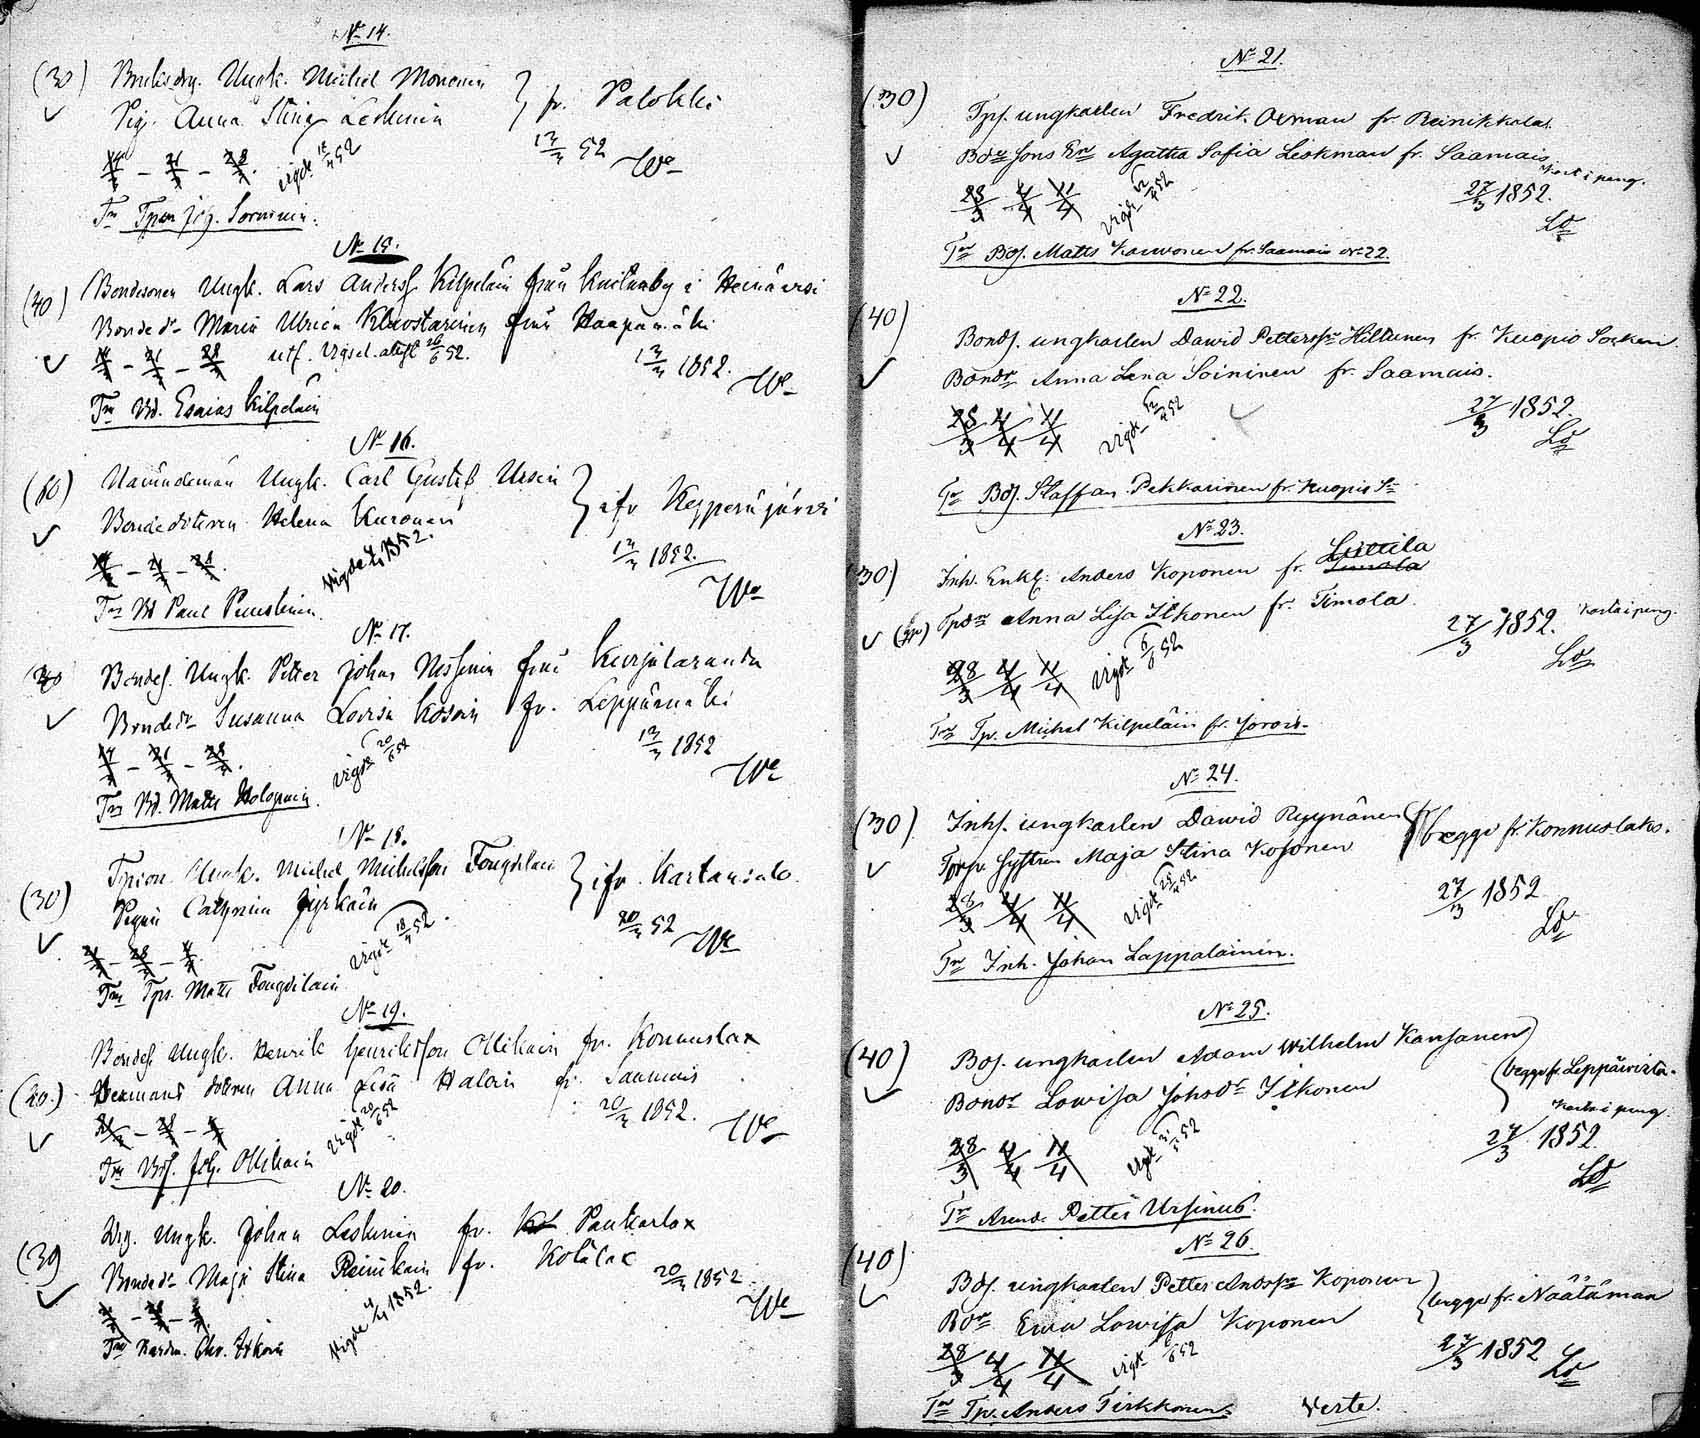 No 14.
(30) Bruksdrg. Ungk. Michel Mononen
Pig. Anna Stina Leskinen } fr. Palokki
14/3 – 21/3 – 28/3. vigde 18/4 52 13/3 52
We
Tm Tpen Joh. Sorninen.
No 15.
(40) Bondesonen Ungk. Lars Andersf. Kilpeläin från by i Heinävesi
Bonded. Maria Ulrica från Haapamäki
14/3 – 21/3 – 28/3 utf. Vigsel attest 26/6 52. 13/3 1852.
We
Tm Bd. Esaias Kilpeläin
No 16.
Ungk. Carl Gustaf
Bondedotteren Helena Kuronen } ifr
14/3 – 21/3 – 28/3. Vigde 4/4 1852. 13/3 1852.
We
Tm Bd Paul
No 17.
Bondes. Ungk. Petter Johan Nissinen från Kurjalaranda
Bonded. Susanna Lovisa Kosoin fr. Leppämäki
14/3 – 21/3 – 28/3. vigde 20/6 52 13/3 1852
We
Tm Bd. Matts Holopain.
No 18.
(30) Tpson Ungk. Michel Michelsson Fougdilain
Pigan Cathrina Jyrkäin } ifr. Kartansalo
21/3 – 28/3 – 4/4. vigde 18/4 52. 20/3 52
We
Tm Tps. Matts Fougdilain
No 19.
Bondes Ungk. Henrik Henriksson Ollikain fr. Konnuslax
dotteren Anna Lisa Haloin fr. Saamais
21/3 – 28/3 – 4/4 vigde 20/6 52 20/3 1852.
We
Tm Bds. Joh. Ollikain
No 20.
Drg. Ungk. Johan Leskinen fr. Paukarlax
Bonded. Maja Stina Reinikain fr. Kotalax
21/3 – 28/3 – 4/4. Vigde 4/4 1852. 20/3 1852
We
No 21.
(30) Tps. ungkarlen Fredrik Oxman fr. Reinikkala.
Agatha Sofia Leskman fr. Saamais
28/3 4/4 11/4 vigde 52 27/3 1852. Karta i peng.
Ld
Tm Bds. Matts Kauvonen fr. Saamais No 22.
No 22.
(40) Bonds. ungkarlen Dawid Petterss. Hiltunen fr. Kuopio Socken.
Bondr Anna Lena Soininen fr. Saamais.
28/3 4/4 11/4 vigde 52 27/3 1852.
Ld
Tm Bds. Staffan Pekkarinen fr. Kuopio Sn
No 23.
(30) Inh. Enkl. Anders Koponen fr. Luttila
Tpdr Anna Lisa Itkonen fr. Timola
28/3 4/4 11/4 vigde 6/6 52 27/3 1852. Karta i peng.
Ld
Tm Tp. Michel Kilpeläin fr. Jorois.
No 24.
(30) Inhs. ungkarlen Dawid Ryynänen
Maja Stina Kosonen } begge fr. Konnuslaks.
28/3 4/4 11/4 Vigde 25/4 52 27/3 1852
Ld
Tm Inh. Johan Lappalainen.
No 25.
(40) Bds. ungkarlen Adam Wilhelm Kansanen
Bondr Lowisa Johsdr Itkonen } begge fr. Leppävirta.
Karta i peng.
28/3 4/4 11/4 Vigde 52 27/3 1852.
Ld
Tm Arend. Petter Ursinus.
No 26.
(40) Bds. ungkarlen Petter Anderss. Koponen
Bdr Ewa Lowisa Koponen } begge fr. Näätämaa
28/3 4/4 11/4 vigde 6/6 52 27/3 1852
Ld
Tm Tp. Anders Tirkkonen. Verte.